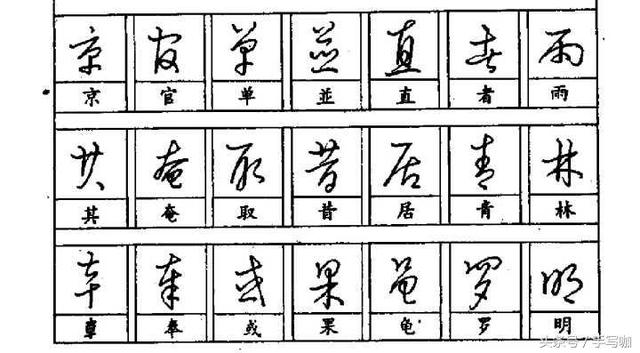 京 官 单 並 直 者 雨
京 官 单 並 直 者 雨
其 奄 取 昔 居 青 林
其 奄 取 昔 居 青 林
卓 奉 或 果 龟 罗 明
卓 奉 或 果 龟 罗 明
头条号/手写咖